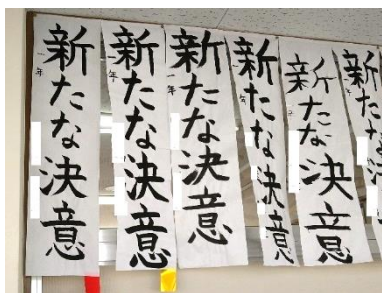 新たな決意
一年
新たな決意
一年
新たな決意
一年
新たな決意
一年
新たな決意
新たな